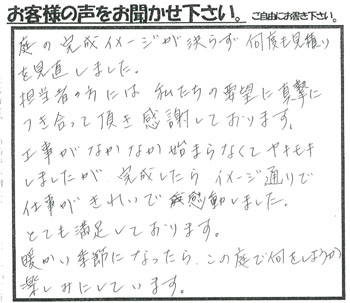 お客様の声をお聞かせ下さい。ご自由にお書き下さい。
庭の完成イメージが決らず何度も見積り
を見直しました。
担当者の方には私たちの要望に真摯に
つき合って頂き感謝しております。
工事がなかなか始まらなくてヤキモキ
しましたが、完成したらイメージ通りで
仕事がきれいで感動しました。
とても満足しております。
暖かい季節になったら、この庭で何をしようか
楽しみにしています。